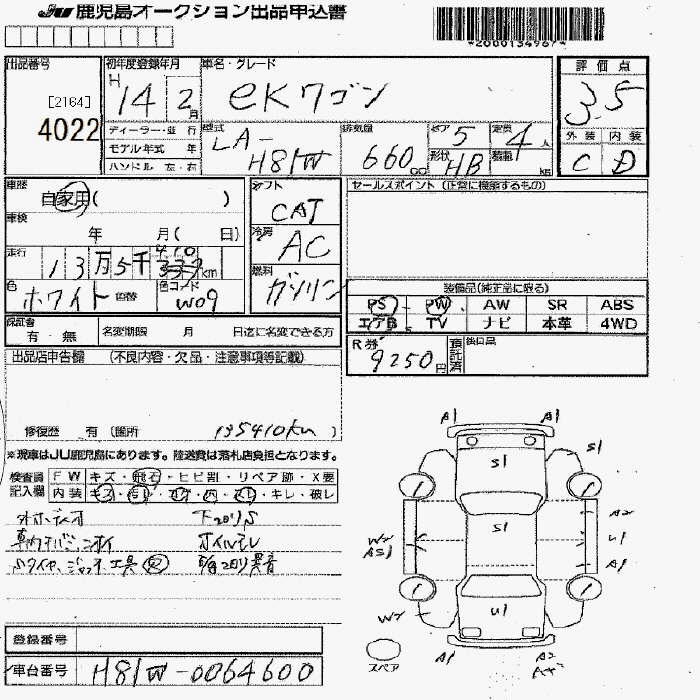 JU 鹿児島オークション出品申込書
*2000134967*
出品番号
[2164]
4022
初年度登録年月 H 14 2月
車名・グレード eKワゴン
評価点 3.5
外装 C 内装 D
ディーラー・並行
モデル年式 年
ハンドル 左・右
型式 LA-H81W
排気量 660cc
ドア 5
定員 4人
形状 HB
積載 kg
車歴 自家用( )
車検 年 月( 日)
走行 13万5千410km
色 ホワイト 色替 色コード W09
シフト CAT
冷房 AC
燃料 ガソリン
セールスポイント(正常に機能するもの)
装備品(純正品に限る)
PS PW AW SR ABS
エアB TV ナビ 本革 4WD
保証書 有・無
名変期限 月 日迄に名変できる方
R券 9250円
預託済
後日品
出品店申告欄 (不良内容・欠品・注意事項等記載)
修復歴 有(箇所 135410km )
※現車はJU鹿児島にあります。陸送費は落札店負担となります。
検査員記入欄
FW キズ・飛石・ヒビ割・リペア跡・X要
内装 キズ・ ・コゲ・穴・ ・キレ・破レ
下回りS
オイルモレ
タイヤ、ジャッキ、工具
異音
A1 A1
S1 S1
S1
W2 A2
AS1 U1
A1
U1
W2
A1 A2
スペア
登録番号
車台番号 H81W-0064600